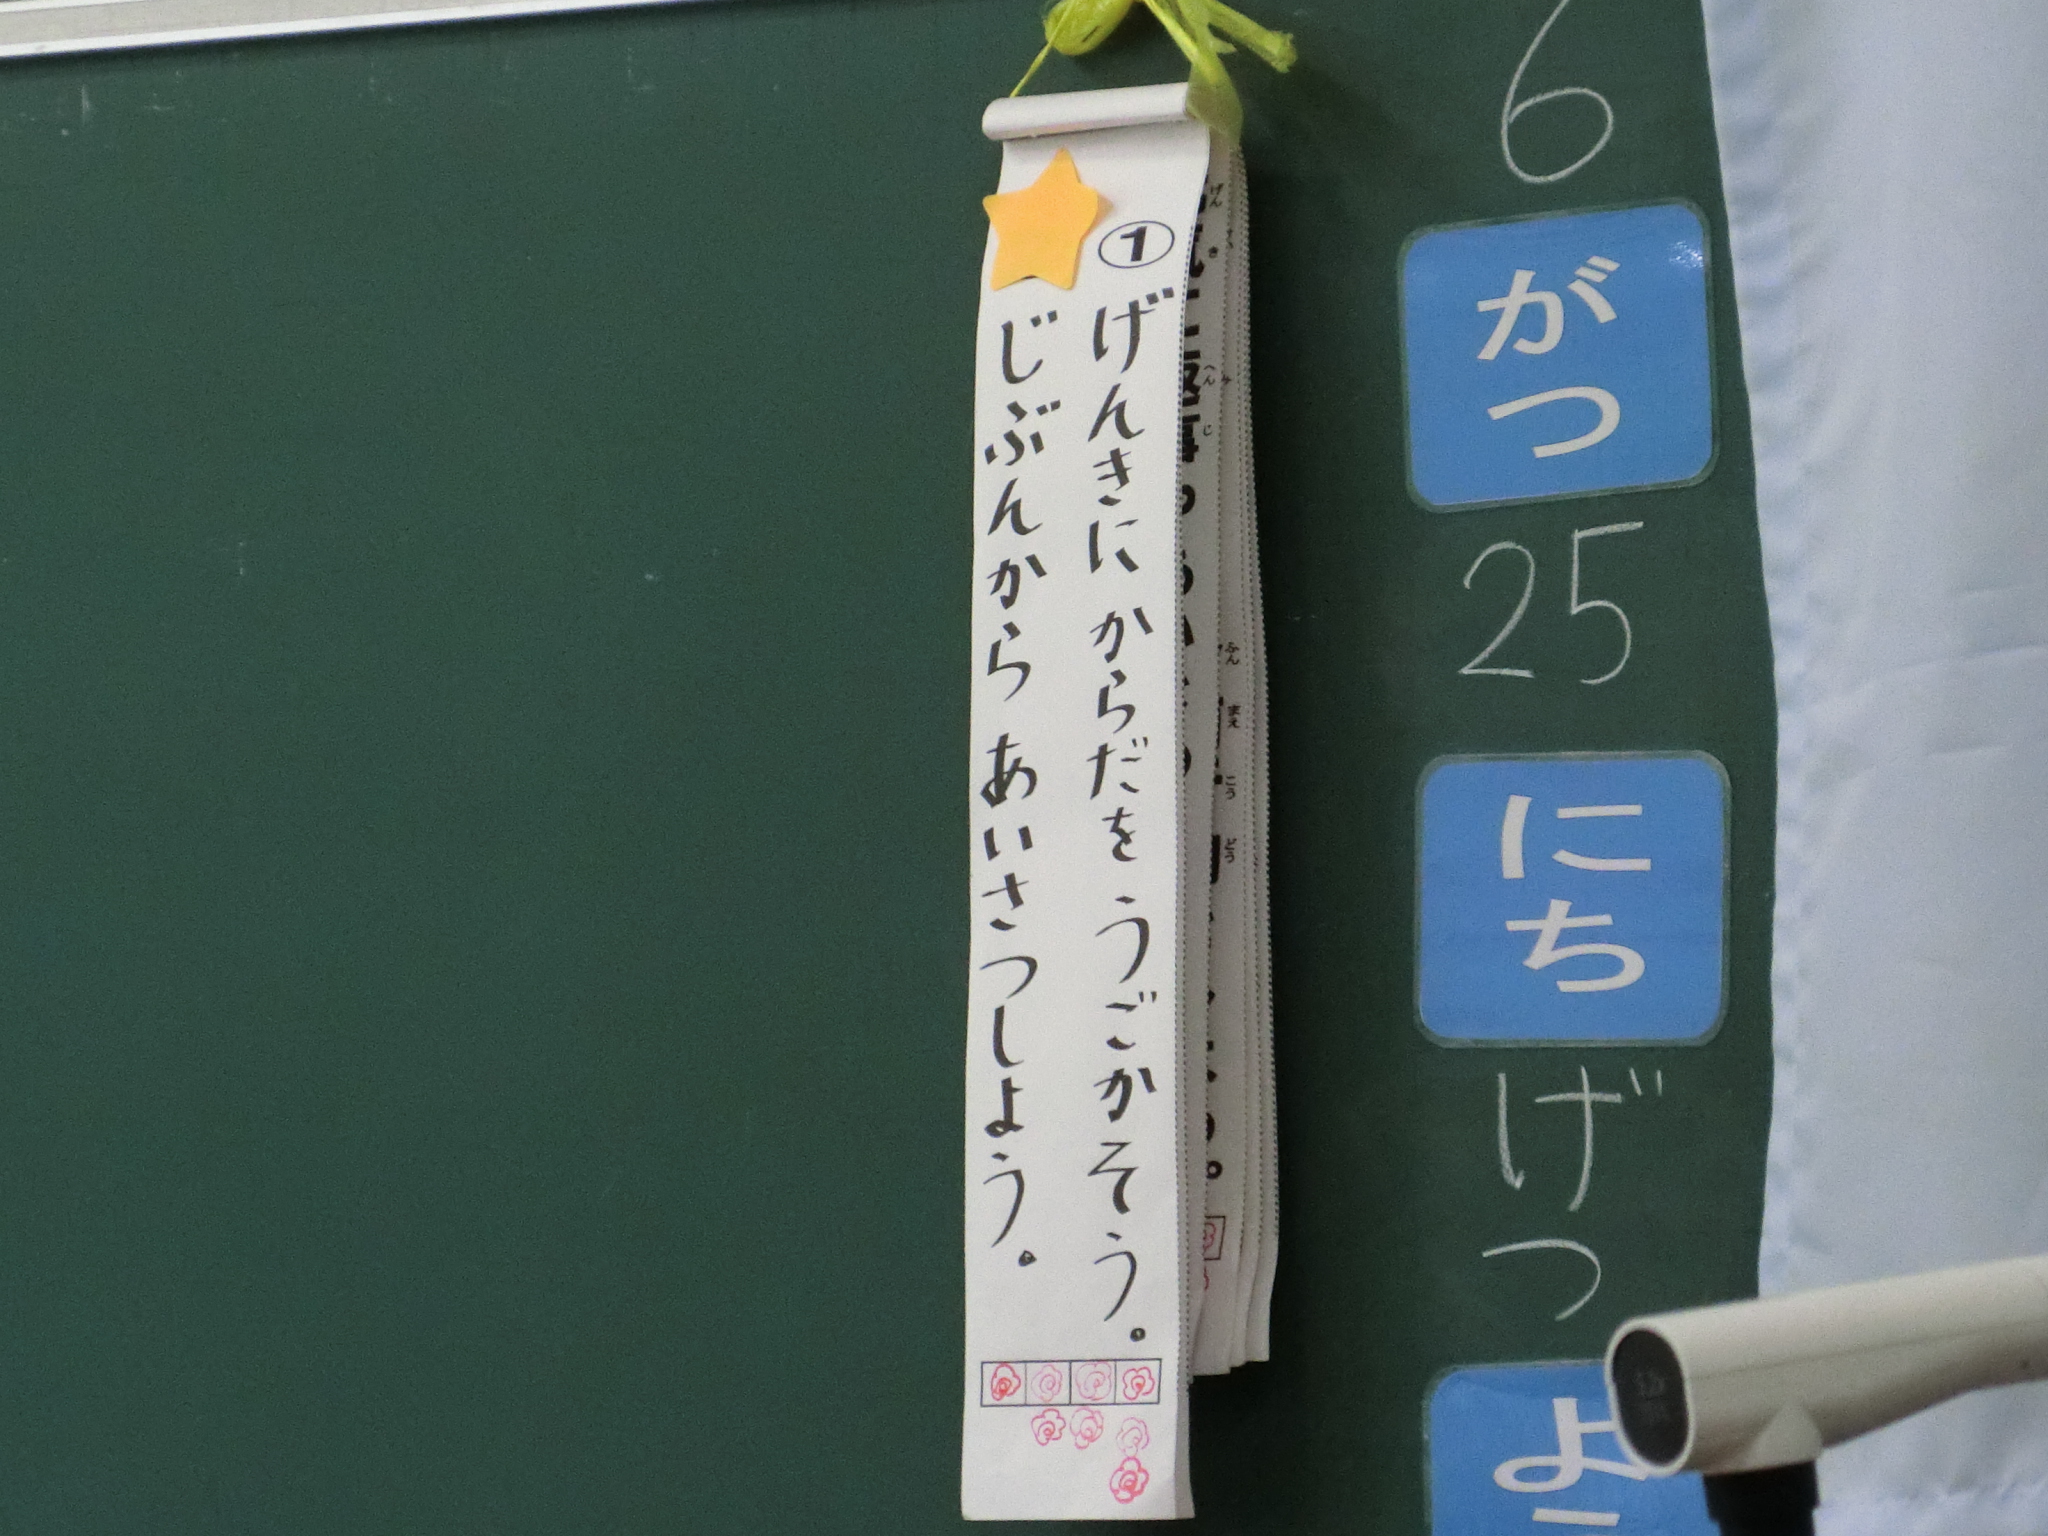 6
がつ
25
にち
げつ
よう
①
げんきに からだを うごかそう。
じぶんから あいさつしよう。